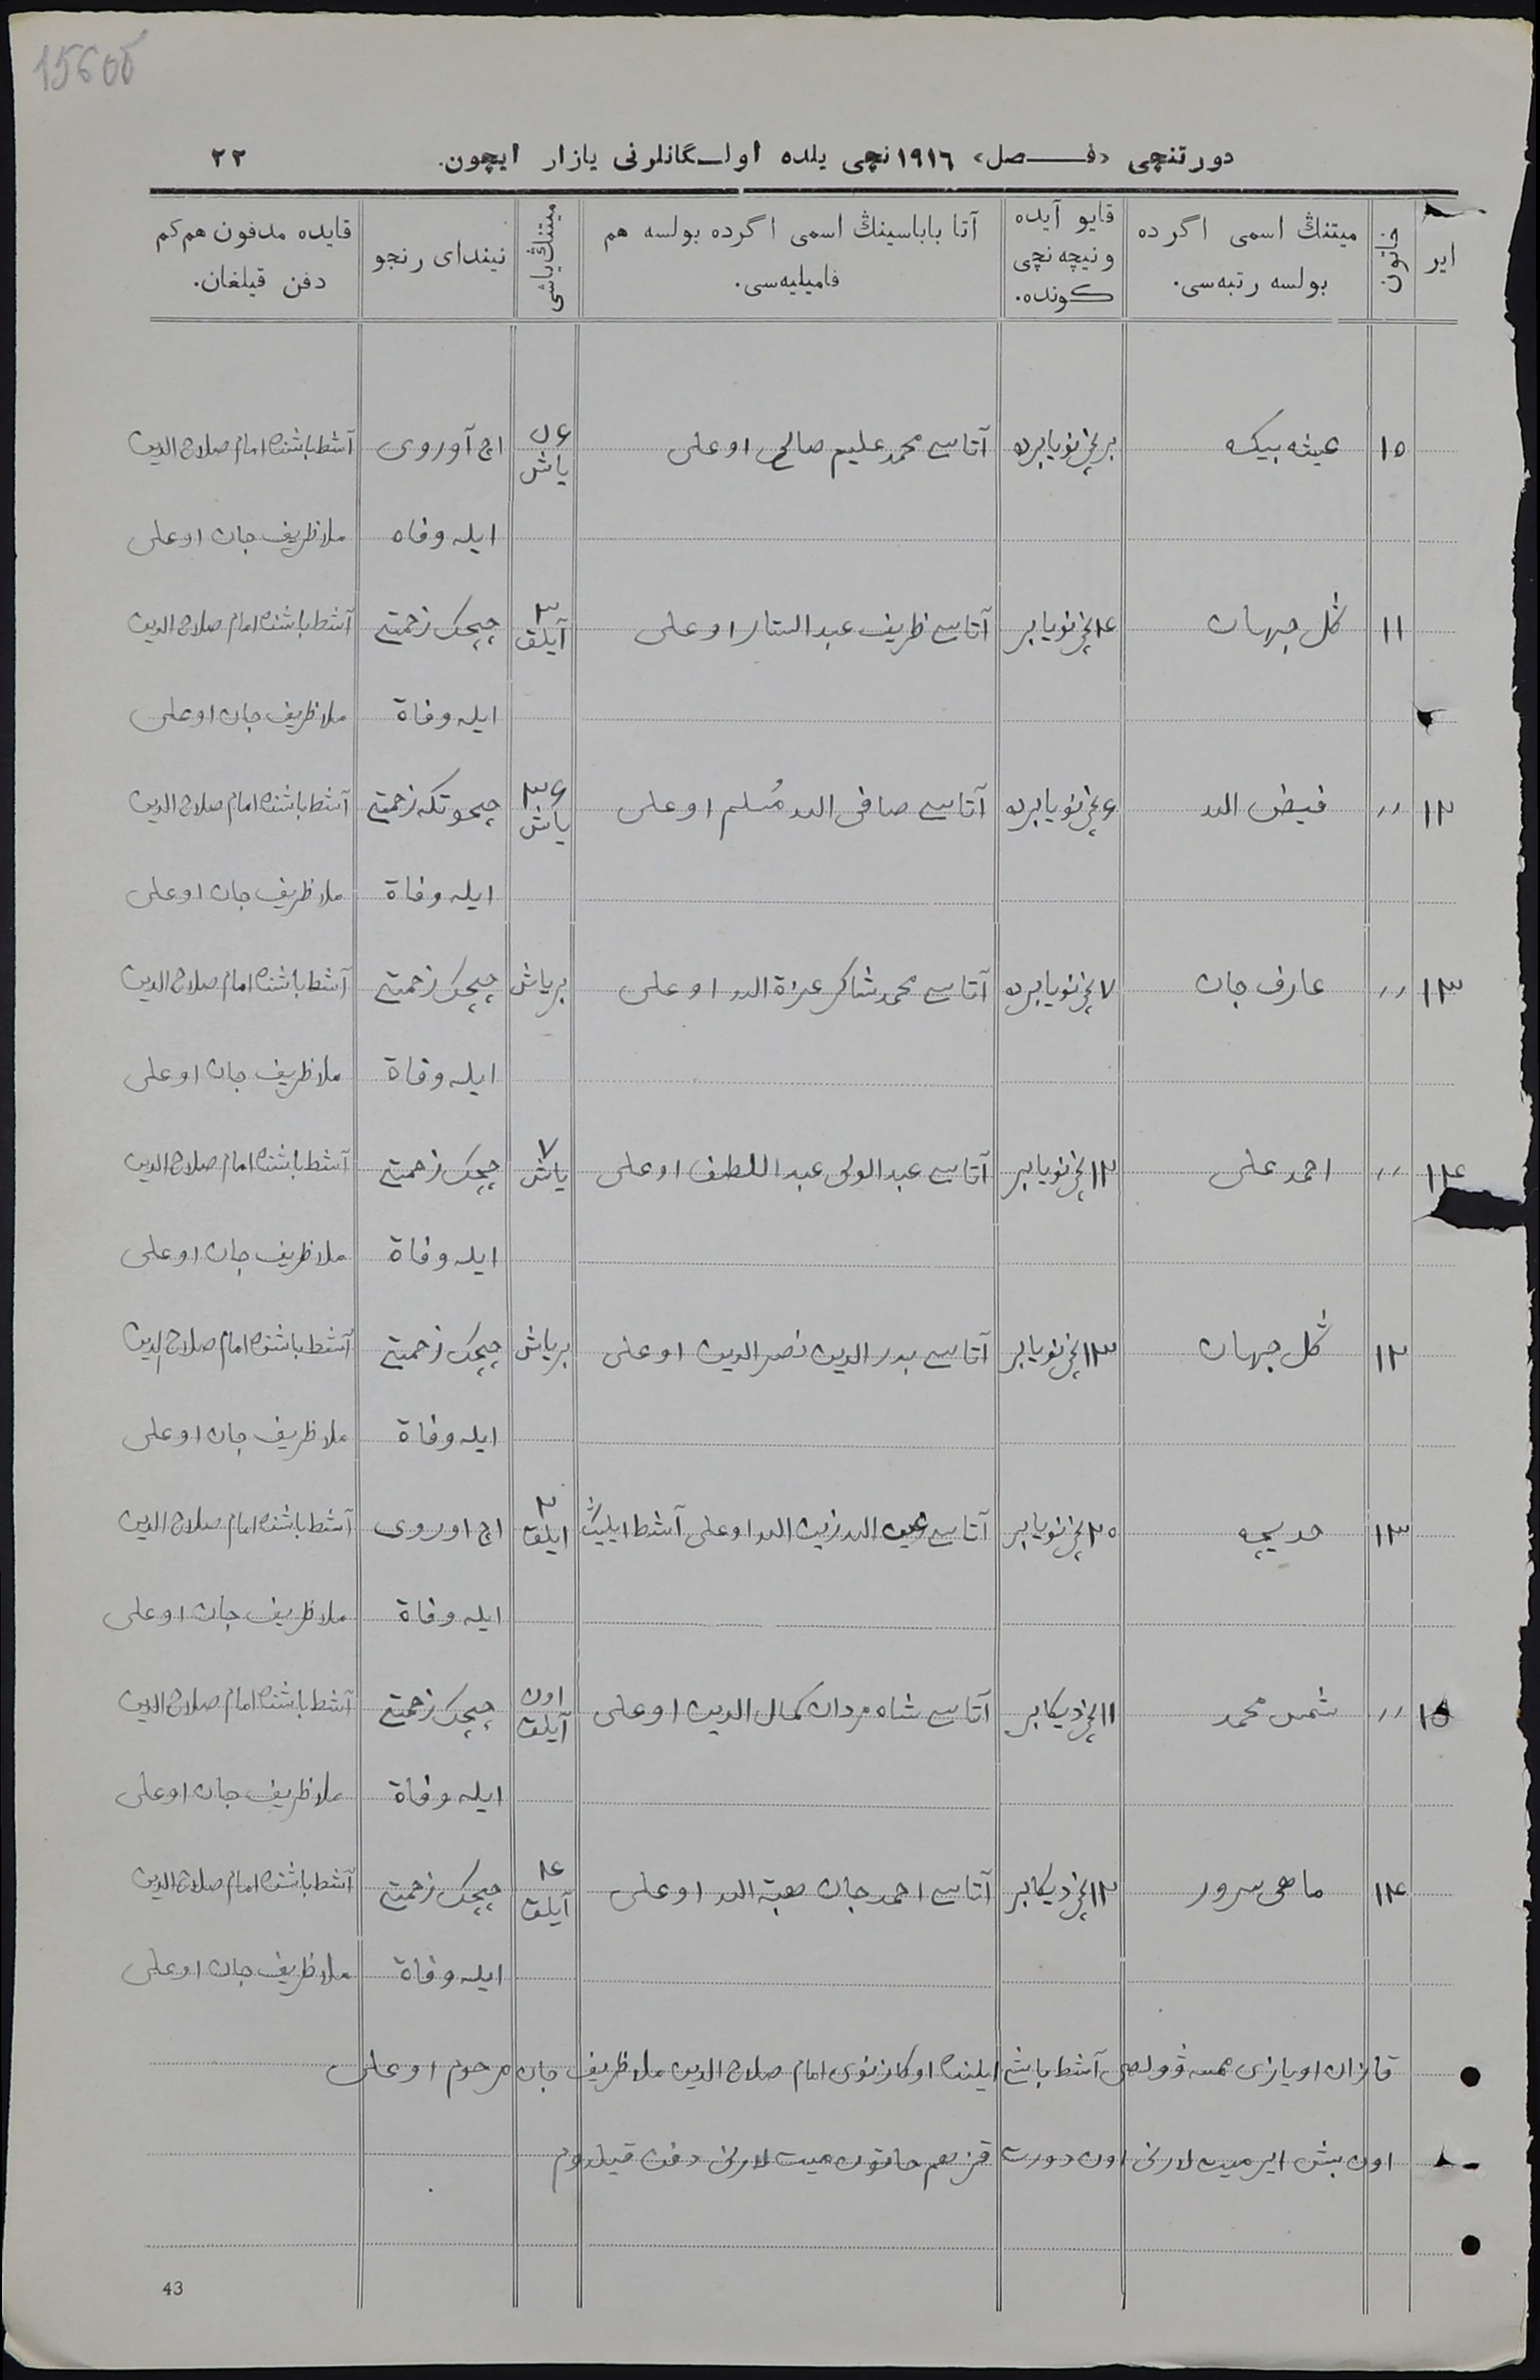 156об
دورتنچی «فـــصل» ١٩١٦نچی یلده اولـگانلرنی یازار ایچون. ٢٢
ایر
خاتون
میتنڭ اسمی اگرده بولسه رتبه‌سی.
قایو آیده ونیچه نچی کونده.
آتا باباسینڭ اسمی اگرده بولسه هم فامیلیه‌سی.
میتنڭ یاشی
نیندای رنجو
قایده مدفون هم کم دفن قیلغان.
١٥ عیشه بیکه برنچی نویابرده آتاسی محمد علیم صالح اوغلی ٧٤ یاش اچ آوروی آشط باشنده امام صلاح الدین
ایله وفاه ملا ظریف جان اوغلی
١١ گل جهان ٤نچی نویابر آتاسی ظریف عبد الستار اوغلی ٣ آیلق چیچک زحمتی آشط باشنده امام صلاح الدین
ایله وفاة ملا ظریف جان اوغلی
١٢ ,, فیض الله ٦نچی نویابرده آتاسی صافی الله مُسلم اوغلی ٣٦ یاش چیحوتکه زحمتی آشط باشنده امام صلاح الدین
ایله وفاة ملا ظریف جان اوغلی
١٣ ,, عارف جان ٧نچی نویابرده آتاسی محمد شاکر عزة الله اوغلی بر یاش چیچک زحمتی آشط باشنده امام صلاح الدین
ایله وفاة ملا ظریف جان اوغلی
١٤ ,, احمد علی ١٢نچی نویابر آتاسی عبد الولی عبد اللطف اوغلی ٧ یاش چیچک زحمتی آشط باشنده امام صلاح الدین
ایله وفاة ملا ظریف جان اوغلی
١٢ گل جهان ١٣نچی نویابر آتاسی بدر الدین نصر الدین اوغلی بر یاش چیچک زحمتی آشط باشنده امام صلاح الدین
ایله وفاة ملا ظریف جان اوغلی
١٣ خدیجه ٢٥نچی نویابر آتاسی عین الله زین الله اوغلی آشط ایلینڭ ٢ ایلق اچ اوروی آشط باشنده امام صلاح الدین
ایله وفاة ملا ظریف جان اوغلی
١٥ ,, شمس محمد ١١نچی دیکابر آتاسی شاه مردان کمال الدین اوغلی اون آیلق چیچک زحمتی آشط باشنده امام صلاح الدین
ایله وفاة ملا ظریف جان اوغلی
١٤ ماهی سرور ١٢نچی دیکابر آتاسی احمد جان هبة الله اوغلی ١٤ آیلق چیچک زحمتی آشط باشنده امام صلاح الدین
ایله وفاة ملا ظریف جان اوغلی
قازان اویازی ۋولصی آشط باشی ایلنده اوکازنوی امام صلاح الدین ملا ظریف جان مرحوم اوغلی
اون بش ایر میت لارنی اون دورت قز هم خاتون میت لارنی دفن قیلدوم
43